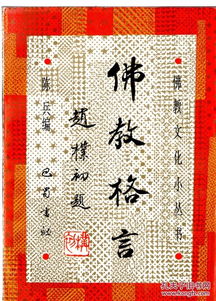 佛教文化小丛书
佛教格言
赵樸初题
陈兵编
巴蜀书社